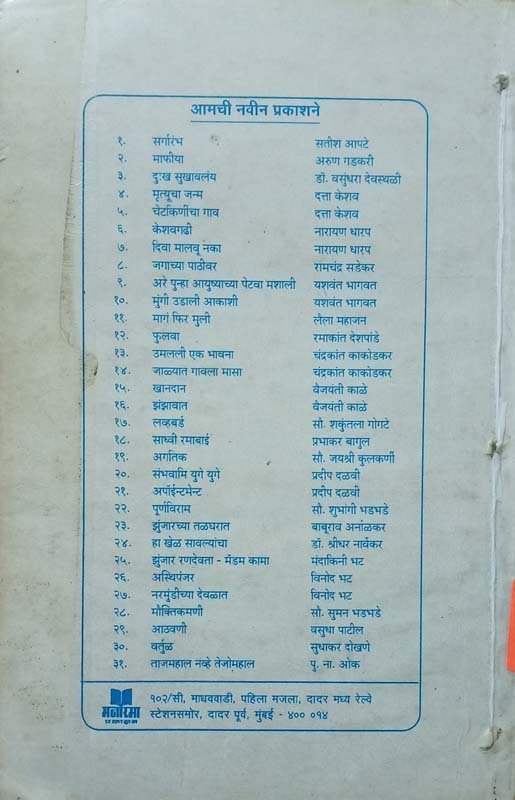 आमची नवीन प्रकाशने
१. सर्गारंभ सतीश आपटे
२. माफीया अरुण गडकरी
३. दुःख सुखावलंय डॉ. वसुंधरा देवस्थळी
४. मृत्यूचा जन्म दत्ता केशव
५. चेटकिणींचा गाव दत्ता केशव
६. केशवगढी नारायण धारप
७. दिवा मालवू नका नारायण धारप
८. जगाच्या पाठीवर रामचंद्र सडेकर
९. अरे पुन्हा आयुष्याच्या पेटवा मशाली यशवंत भागवत
१०. मुंगी उडाली आकाशी यशवंत भागवत
११. मागं फिर मुली लैला महाजन
१२. फुलवा रमाकांत देशपांडे
१३. उमलली एक भावना चंद्रकांत काकोडकर
१४. जाळ्यात गावला मासा चंद्रकांत काकोडकर
१५. खानदान वैजयंती काळे
१६. झंझावात वैजयंती काळे
१७. लव्हबर्ड सौ. शकुंतला गोगटे
१८. साध्वी रमाबाई प्रभाकर बागुल
१९. अगतिक सौ. जयश्री कुलकर्णी
२०. संभवामि युगे युगे प्रदीप दळवी
२१. अपॉईन्टमेन्ट प्रदीप दळवी
२२. पूर्णविराम सौ. शुभांगी भडभडे
२३. झुंजारच्या तळघरात बाबूराव अर्नाळकर
२४. हा खेळ सावल्यांचा डॉ. श्रीधर नार्वेकर
२५. झुंजार रणदेवता - मॅडम कामा मंदाकिनी भट
२६. अस्थिपंजर विनोद भट
२७. नरमुंडीच्या देवळात विनोद भट
२८. मौक्तिकमणी सौ. सुमन भडभडे
२९. आठवणी वसुधा पाटील
३०. वर्तुळ सुधाकर दोखणे
३१. ताजमहाल नव्हे तेजोमहाल पु. ना. ओक
मनोरमा प्रकाशन
१०२/सी, माधववाडी, पहिला मजला, दादर मध्य रेल्वे
स्टेशनसमोर, दादर पूर्व, मुंबई - ४०० ०१४